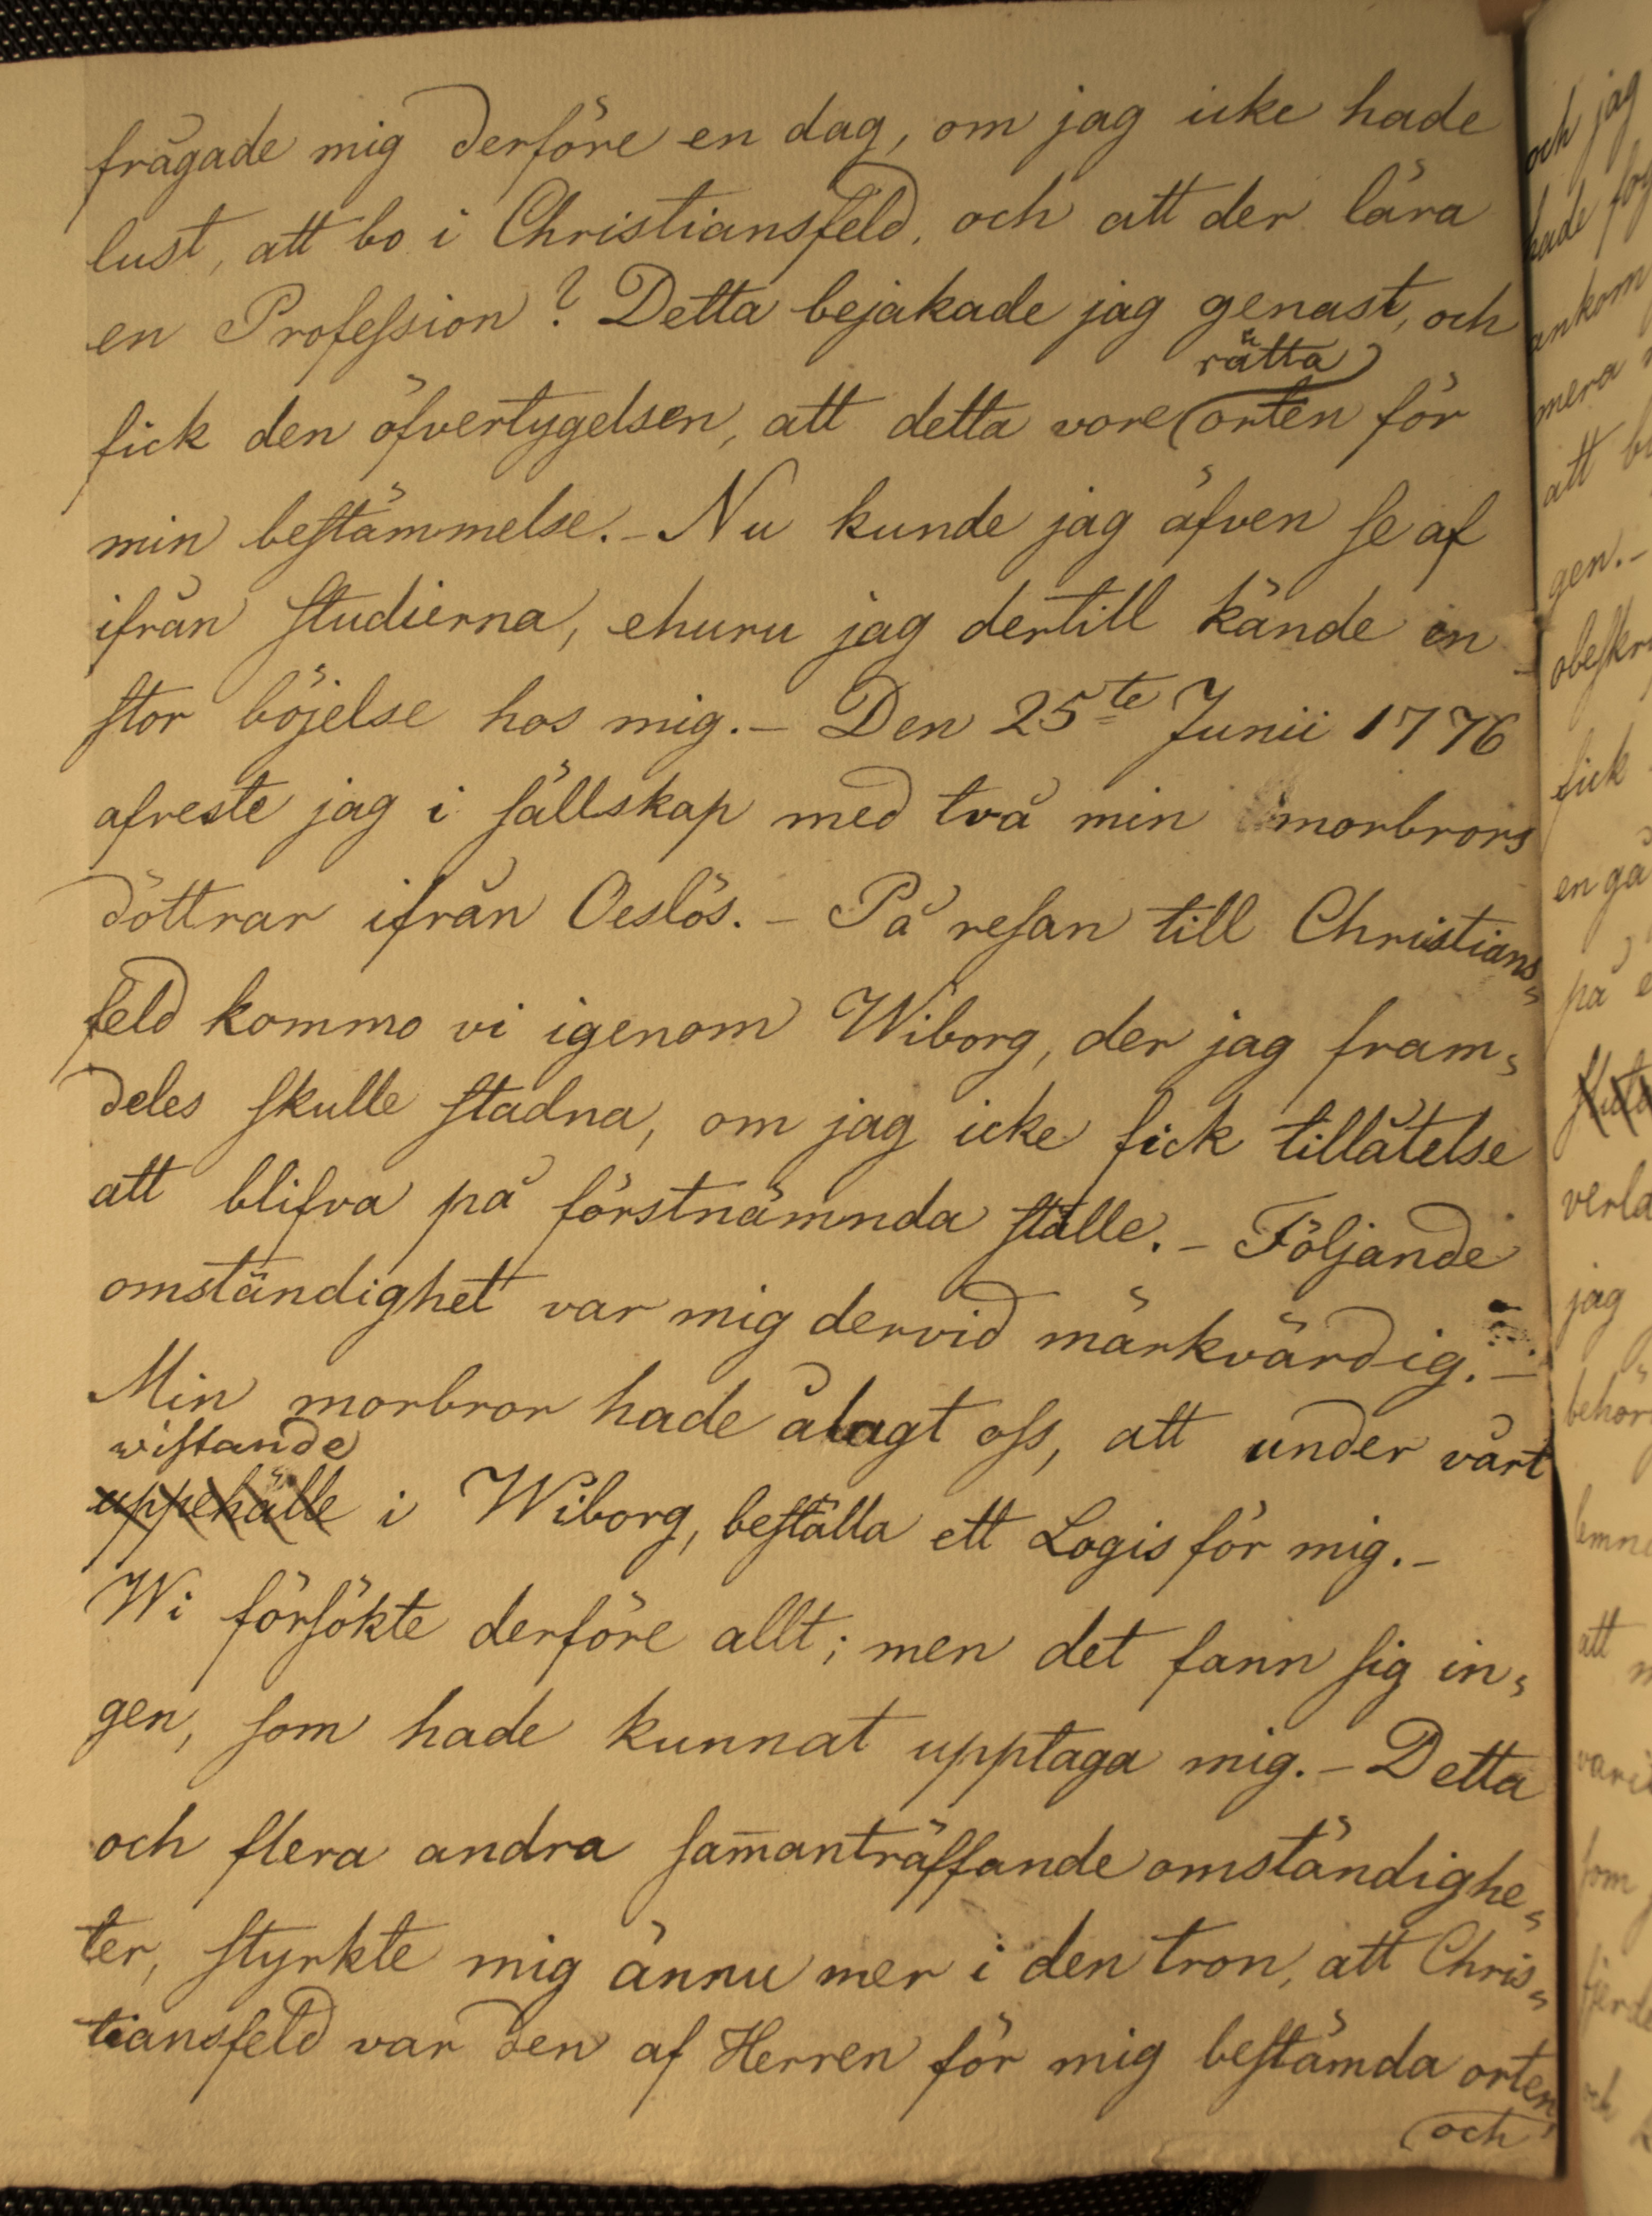 frågade mig derföre en dag, om jag icke hade
lust, att bo i Christiansfeld, och att der lära
en Profession? Detta bejakade jag genast, och
rätta
fick den öfvertygelsen, att detta vore orten för
min bestämmelse. – Nu kunde jag äfven se af
ifrån studierna, ehuru jag dertill kände en
stor böjelse hos mig. – Den 25te Junii 1776
afreste jag i sällskap med två min morbrors
döttrar ifrån Oeslös. – På resan till Christians=
feld kommo vi igenom Wiborg, der jag fram=
deles skulle stadna, om jag icke fick tillåtelse
att blifva på förstnämnda ställe. – Följande
omständighet var mig dervid märkvärdig. –
Min morbror hade ålagt oss, att under vårt
wistande
uppehälle i Wiborg, beställa ett Logis för mig. –
Wi försökte derföre allt; men det fann sig in=
gen, som hade kunnat upptaga mig. – Detta
och flera andra sam̄anträffande omständighe=
ter, styrkte mig ännu mer i den tron, att Chris=
tiansfeld var den af Herren för mig bestämda orten,
och
och jag
ankom
mera
att
gen. –
fick
på
jag
att
som